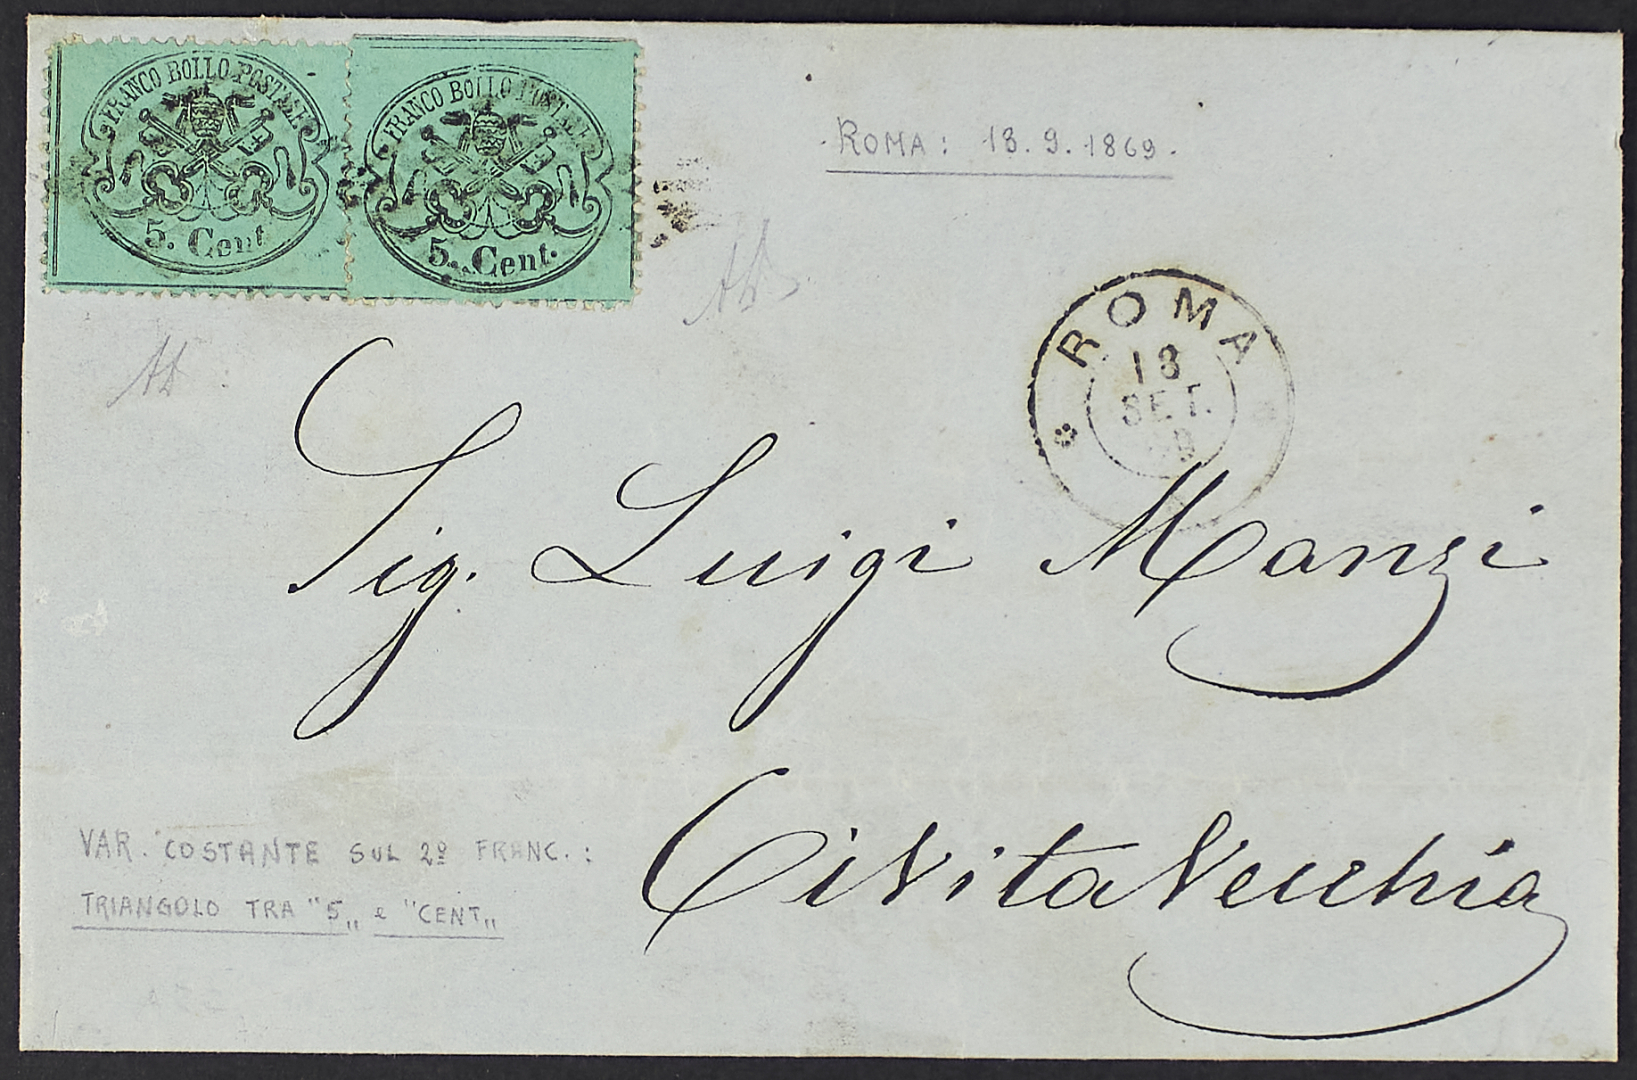 FRANCO BOLLO POSTALE
5. Cent
FRANCO BOLLO POSTALE
5. Cent.
ROMA: 18.9.1869.
ROMA
18
SET.
Sig. Luigi Manzi
CivitaVecchia
VAR. COSTANTE SUL 2º FRANC.:
TRIANGOLO TRA "5„ e "CENT„